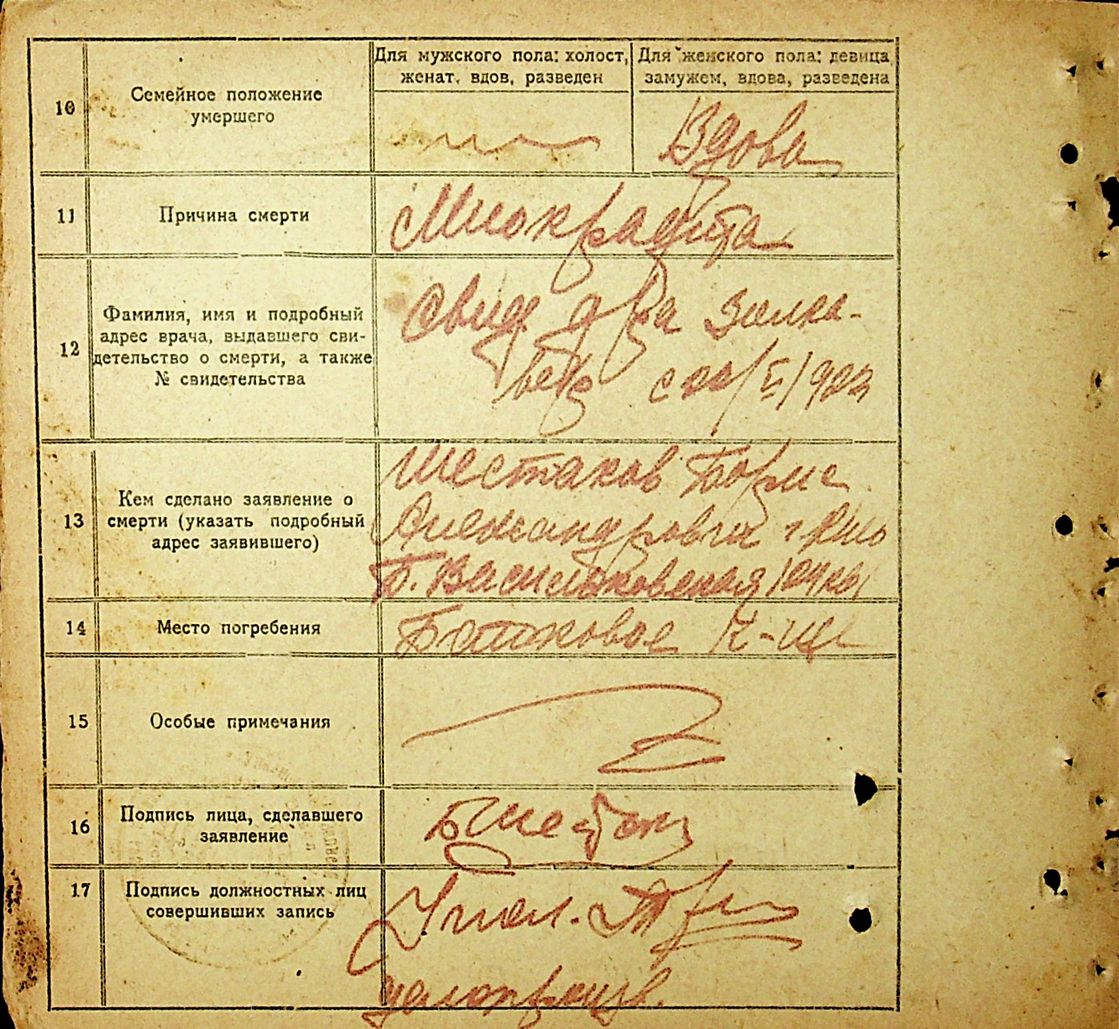 Для мужского пола: холост, женат, вдов, разведен
Для женского пола: девица, замужем, вдова, разведена
10
Семейное положение
умершего
Вдова
11
Причина смерти
Миокрадита
12
Фамилия, имя и подробный
адрес врача, выдавшего сви-
детельство о смерти, а также
№ свидетельства
Свид д-ра
13
Кем сделано заявление о
смерти (указать подробный
адрес заявившего)
Шестаков Борис
Александрович
Б. Васильковская
14
Место погребения
Байковое К-ще
15
Особые примечания
16
Подпись лица, сделавшего
заявление
17
Подпись должностных лиц
совершивших запись
Упол.
делопроизв.